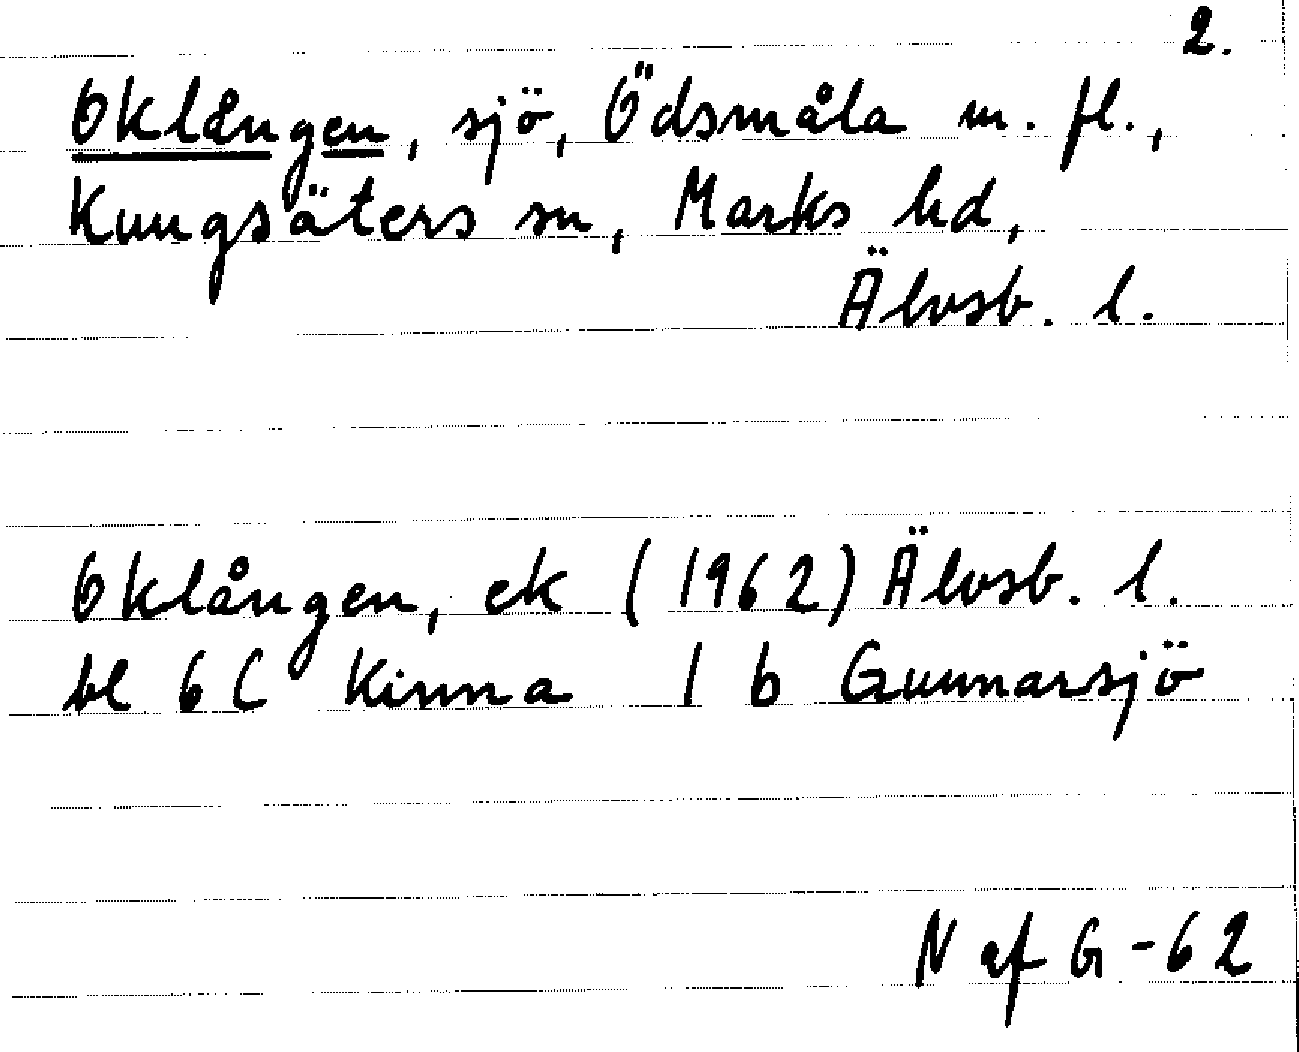 2.
Oklången, sjö, Ödsmåla m. fl.,
Kungsäters sn, Marks hd,
Älvsb. l.
Oklången, ek (1962) Älvsb. l.
bl 6 C Kinna 1 b Gunnarsjö
N af G -62